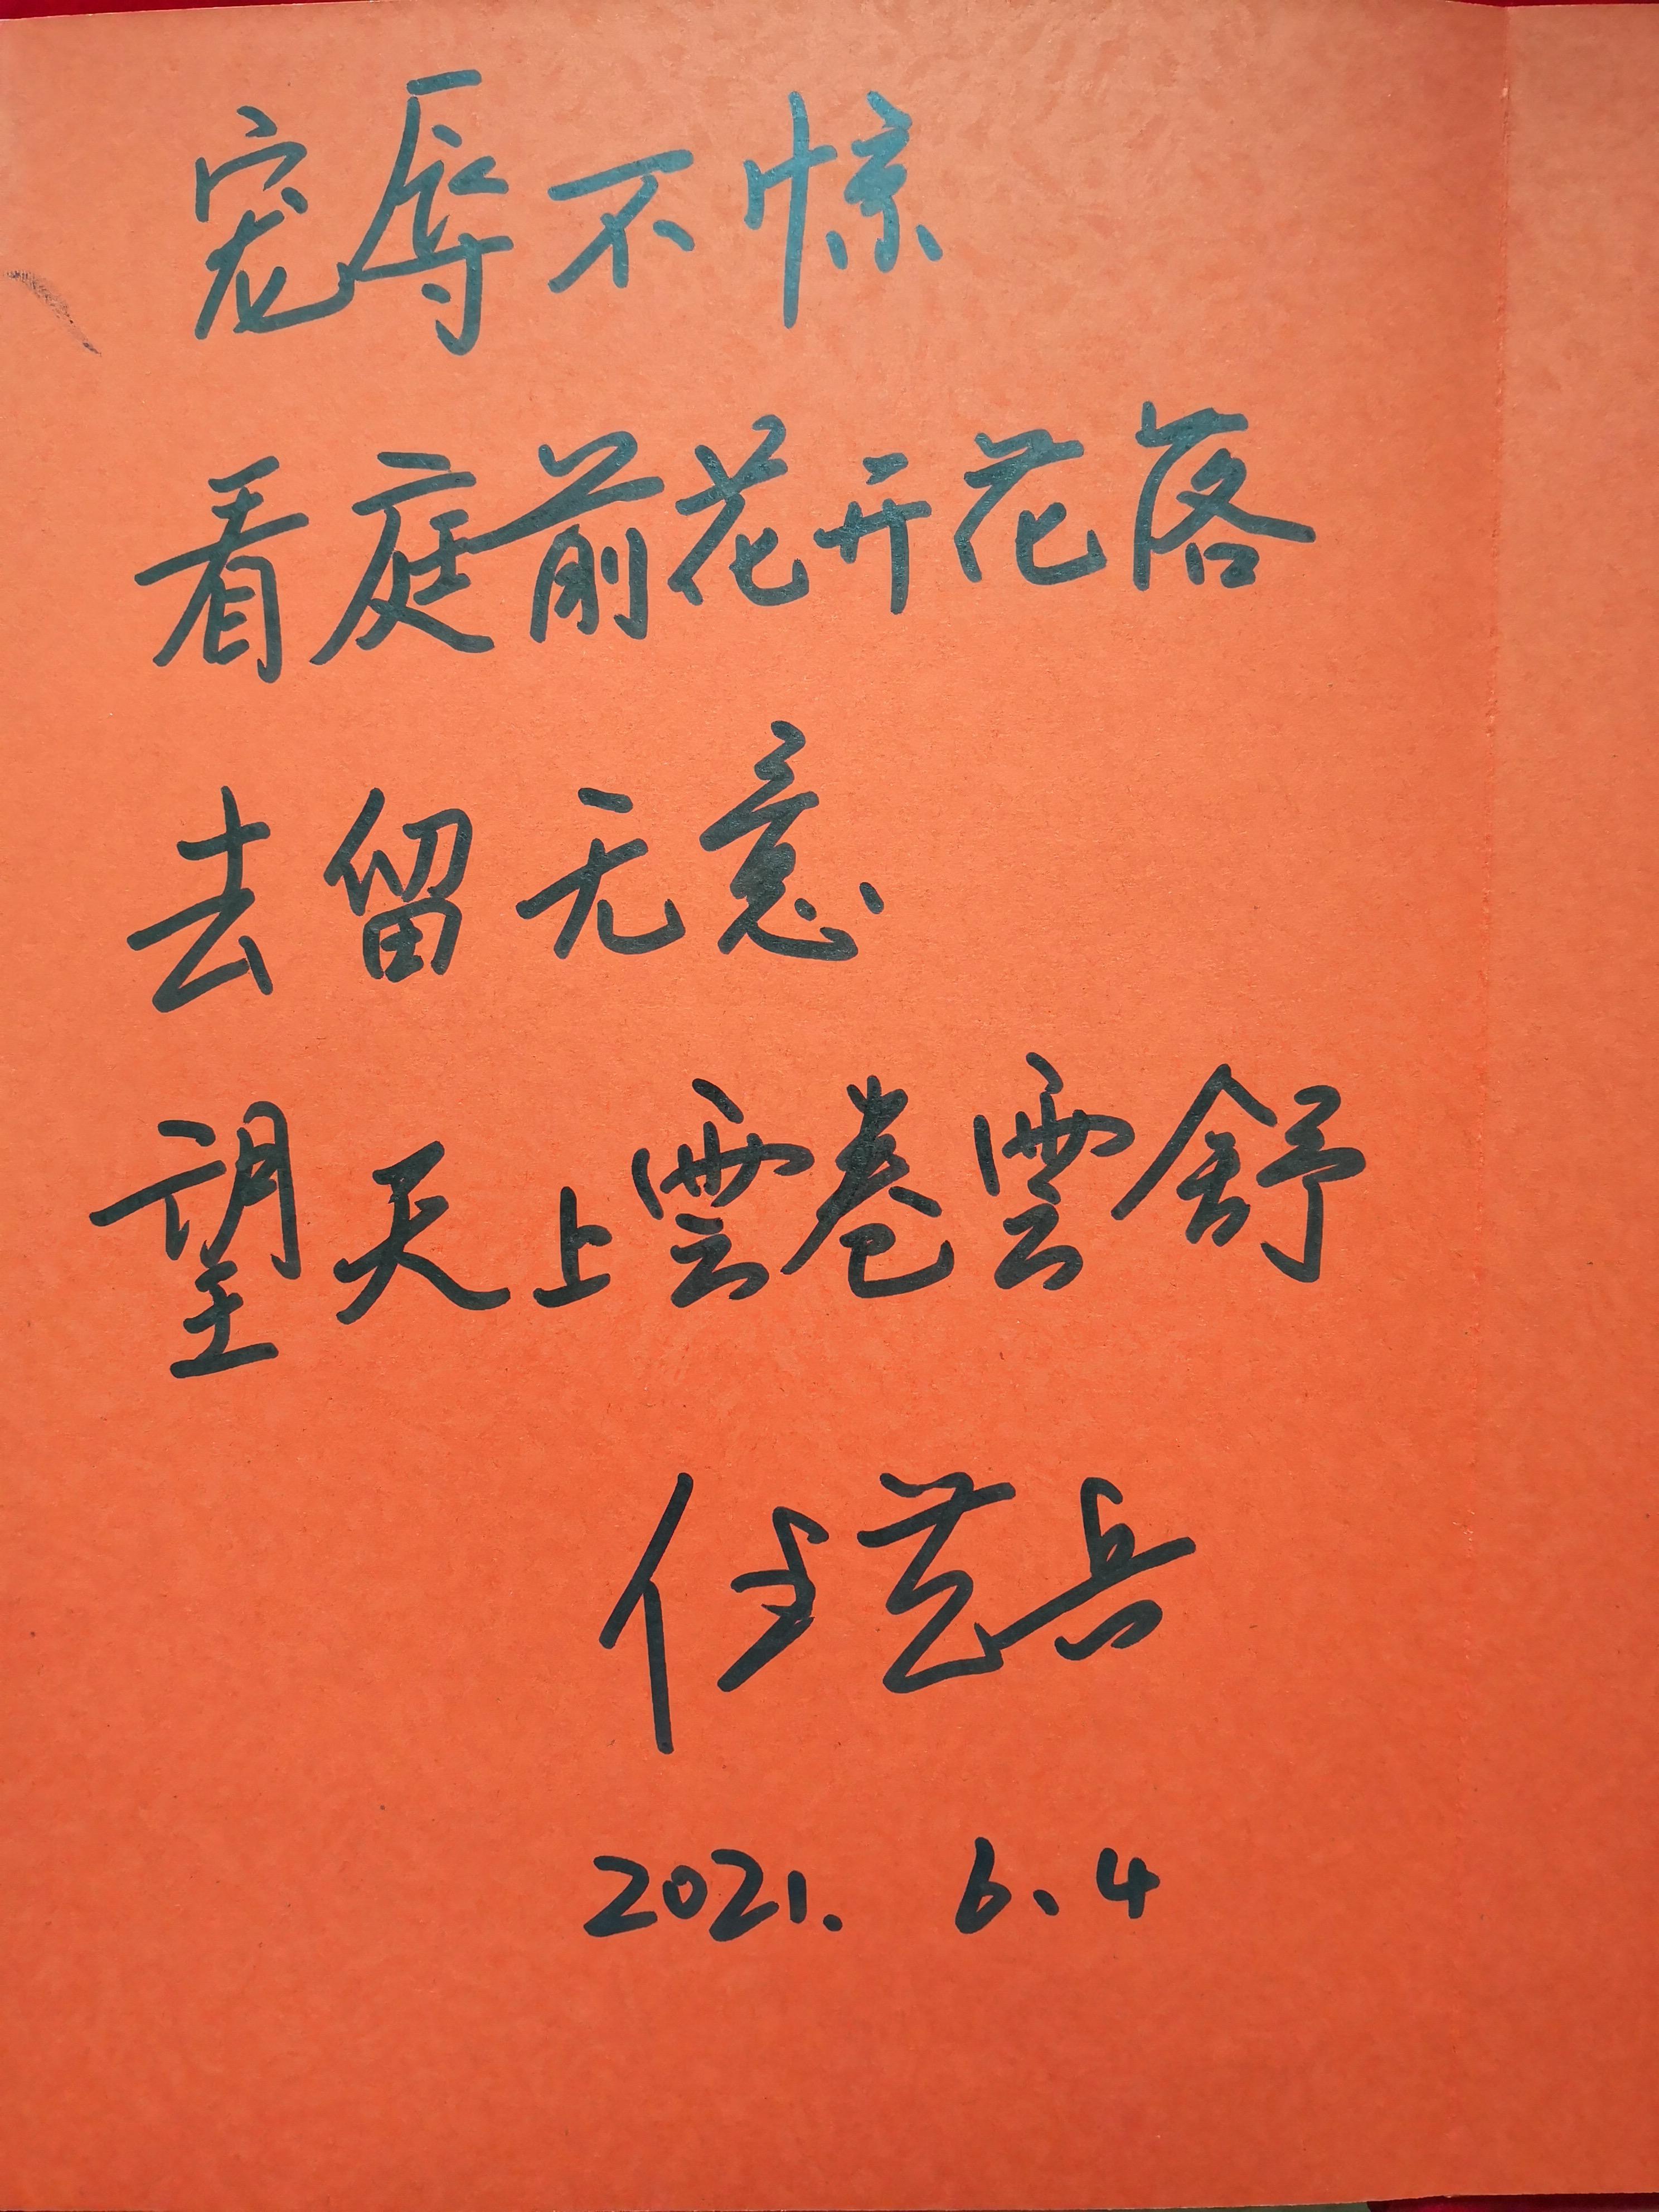 宠辱不惊
看庭前花开花落
去留无意
望天上雲卷雲舒
任芸兵
2021. 6.4